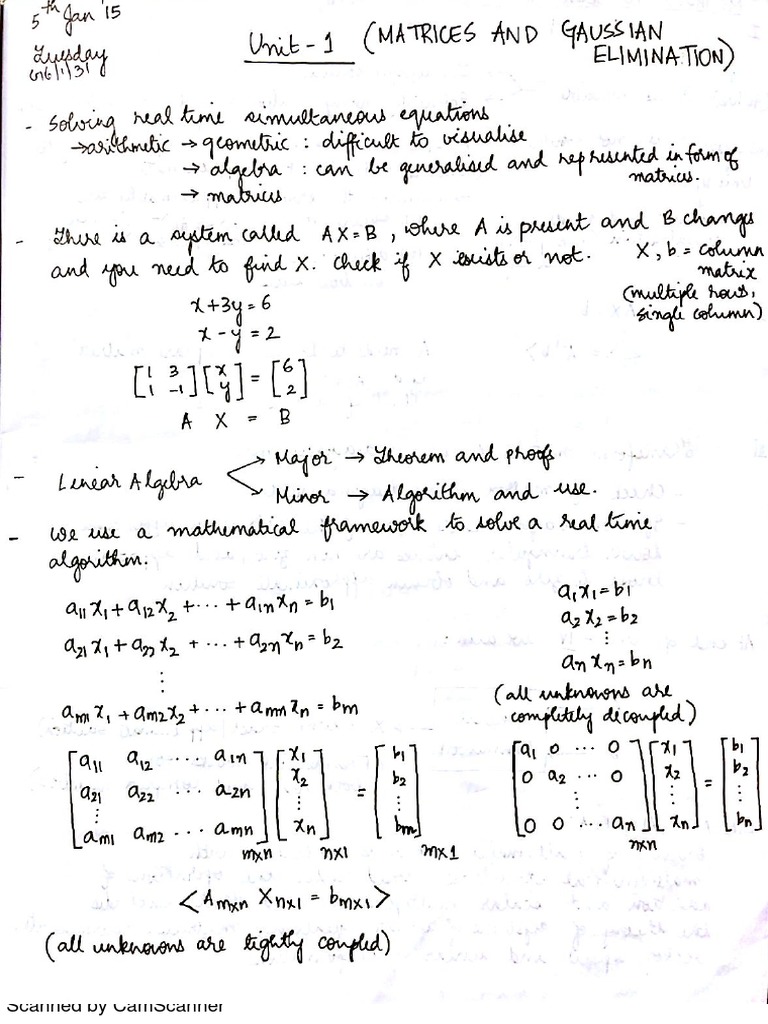 5th Jan '15
Tuesday
Unit - 1 (MATRICES AND GAUSSIAN
ELIMINATION)
- Solving real time simultaneous equations
→ arithmetic → geometric : difficult to visualise
→ algebra : can be generalised and represented in form of
matrices.
→ matrices
- There is a system called AX = B, where A is present and B changes
and you need to find X. Check if X exists or not. X, b = column
matrix
(multiple rows,
single column)
x + 3y = 6
x - y = 2
[1 3] [x] = [6]
[1 -1] [y] [2]
A X = B
- Linear Algebra → Major → Theorem and proofs
→ Minor → Algorithm and use.
- We use a mathematical framework to solve a real time
algorithm.
a11 x1 + a12 x2 + ... + a1n xn = b1
a21 x1 + a22 x2 + ... + a2n xn = b2
⋮
am1 x1 + am2 x2 + ... + amn xn = bm
a1 x1 = b1
a2 x2 = b2
⋮
an xn = bn
(all unknowns are
completely decoupled)
[a11 a12 ... a1n] [x1] = [b1]
[a21 a22 ... a2n] [x2] [b2]
⋮ ⋮ ⋮
[am1 am2 ... amn] [xn] [bm]
mxn nx1 mx1
[a1 0 ... 0] [x1] = [b1]
[0 a2 ... 0] [x2] [b2]
⋮ ⋮ ⋮
[0 0 ... an] [xn] [bn]
nxn
<Amxn Xnx1 = bmx1>
(all unknowns are tightly coupled)
Scanned by CamScanner